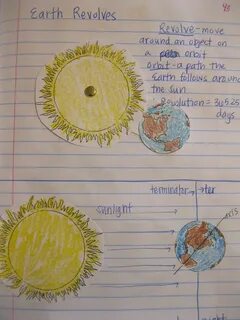 Earth Revolves
Revolve - move
around an object on
a orbit
orbit - a path the
Earth follows around
the sun
Revolution = 365.25
days
terminator
ter
sunlight
axis
night